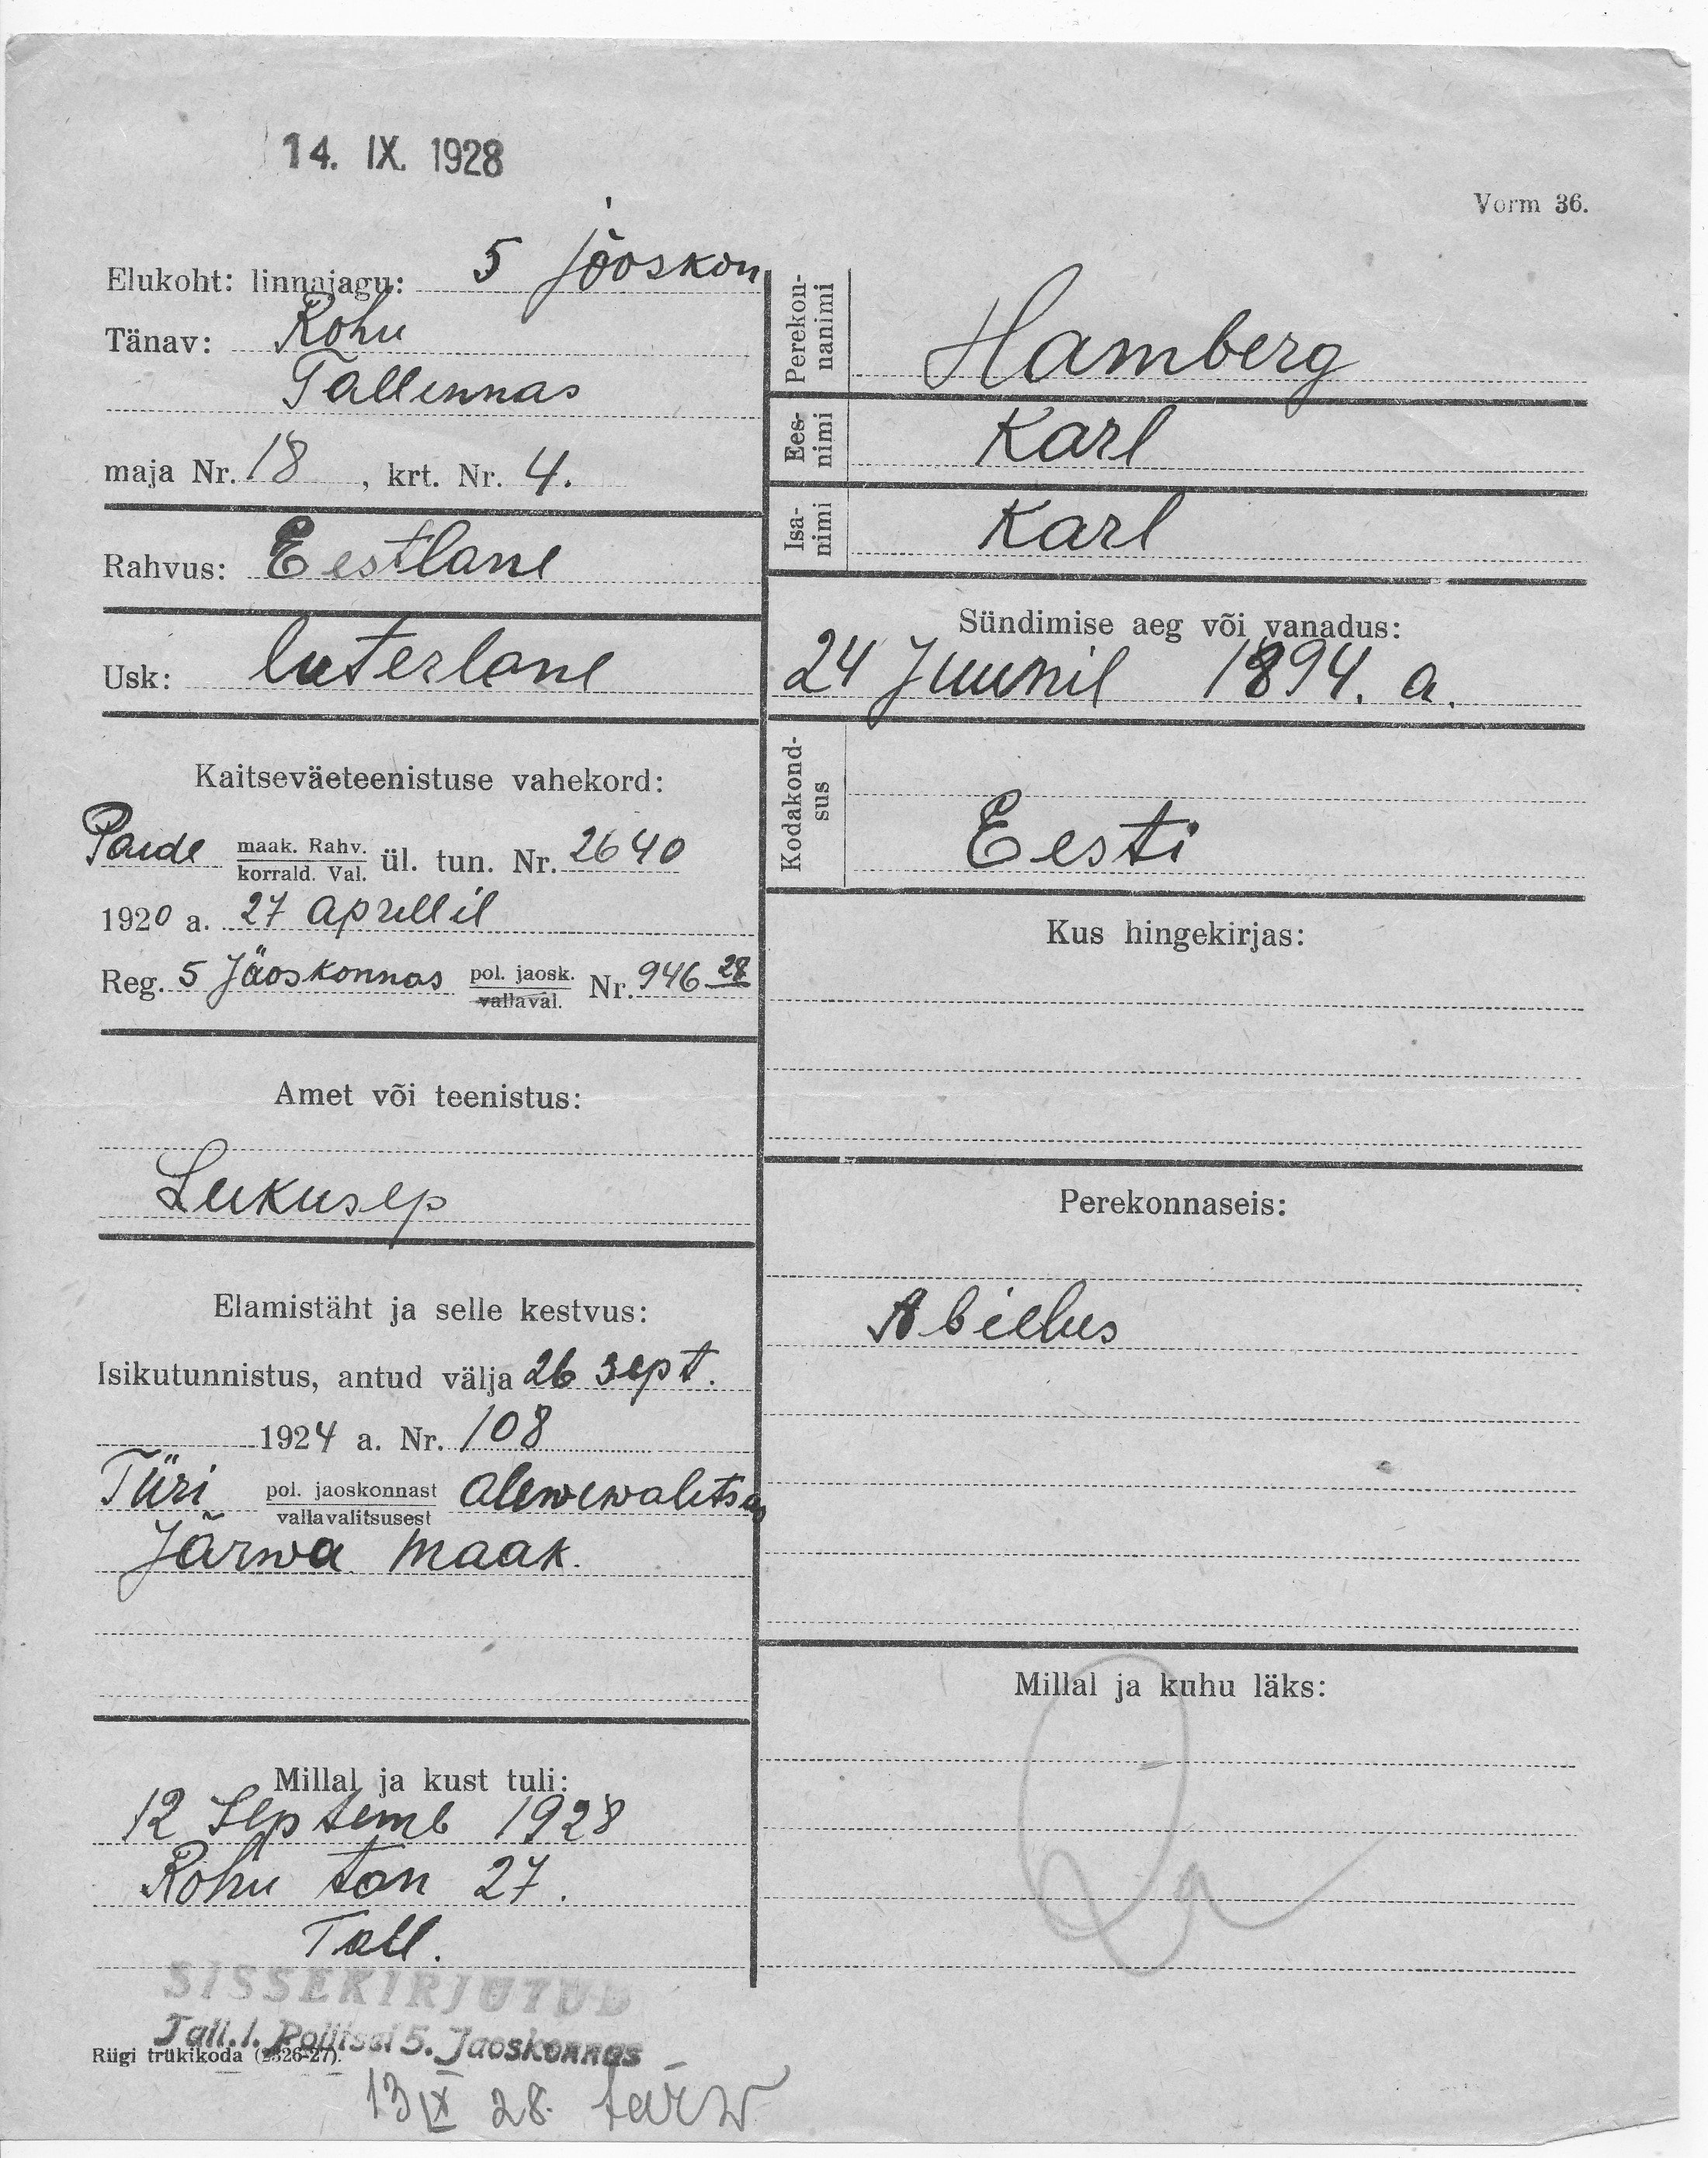 14. IX. 1928
Vorm 36.
Elukoht: linnajagu: 5 jõoskon
Tänav: Rohu
Tallennas
maja Nr. 18, krt. Nr. 4.
Rahvus: Eestlane
Usk: luterlane
Kaitseväeteenistuse vahekord:
Paide maak. Rahv. korrald. Val. ül. tun. Nr. 2640
1920 a. 27 aprillil
Reg. 5 Jäoskonnas pol. jaosk. vallaval. Nr. 946 28
Amet või teenistus:
Lukusep
Elamistäht ja selle kestvus:
Isikutunnistus, antud välja 26 sept.
1924 a. Nr. 108
Türi pol. jaoskonnast vallavalitsusest alewewalitsus
Järwa maak.
Millal ja kust tuli:
12 Septemb 1928
Rohu tän 27.
Tall.
SISSEKIRJUTUD
Tall. l. Politsei 5. Jaoskonnas
Riigi trükikoda (2326-27).
13 IX 28.
Perekonnanimi
Hamberg
Eesnimi
Karl
Isanimi
Karl
Sündimise aeg või vanadus:
24 Juunil 1894. a.
Kodakondsus
Eesti
Kus hingekirjas:
Perekonnaseis:
Abielus
Millal ja kuhu läks: